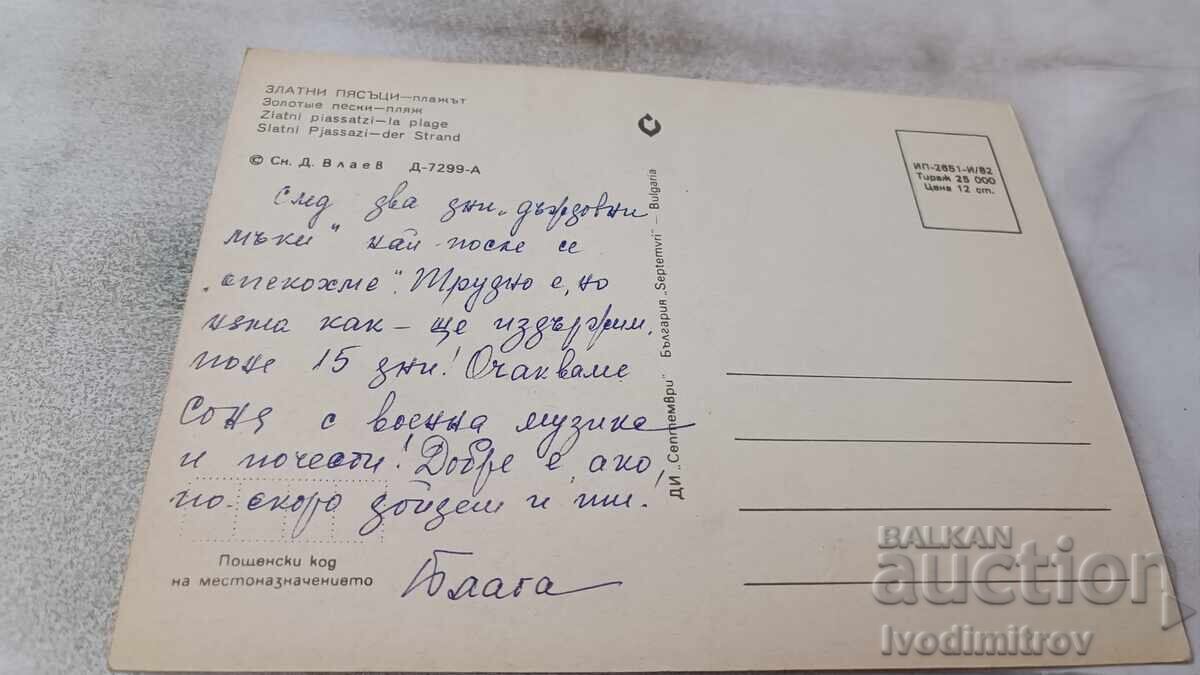 ЗЛАТНИ ПЯСЪЦИ—плажът
Золотые пески—пляж
Zlatni piassatzi—la plage
Slatni Pjassazi—der Strand
© Сн. Д. Влаев Д-7299-А
След два дни „дъждовни
мъки" най-после се
„спекохме". Трудно е, но
няма как – ще издържим
поне 15 дни! Очакваме
Соня с военна музика
и почести! Добре е, ако
по-скоро дойдеш и ти!
Блага
Пощенски код
на местоназначението
ДИ „Септември" България „Septemvri" — Bulgaria
ИП-2651-И/82
Тираж 25 000
Цена 12 ст.
BALKAN
auction
Ivodimitrov